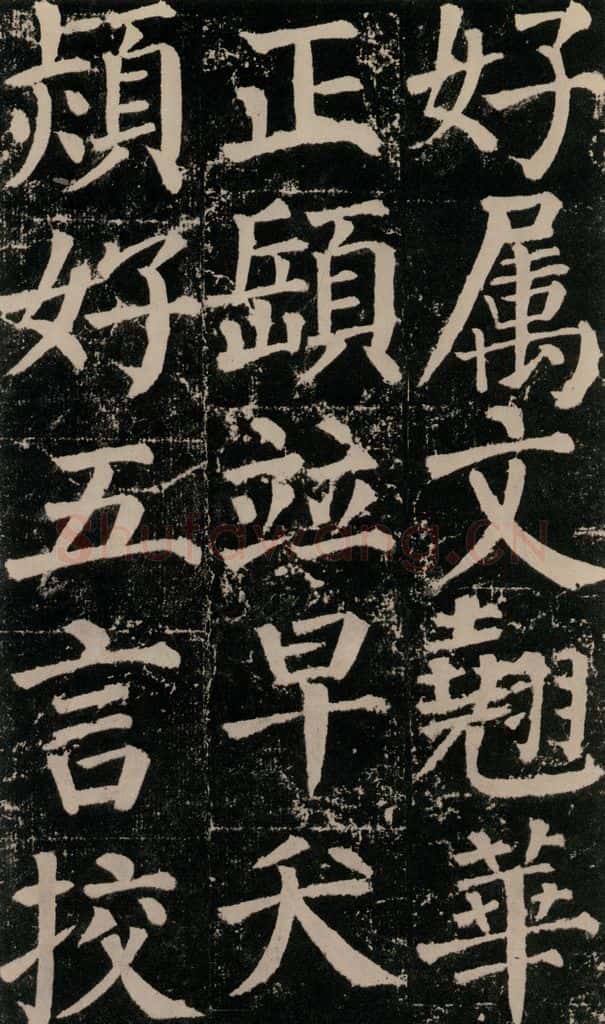 好属文翹華
正頤並早夭
熲好五言挍
Shufawang.CN